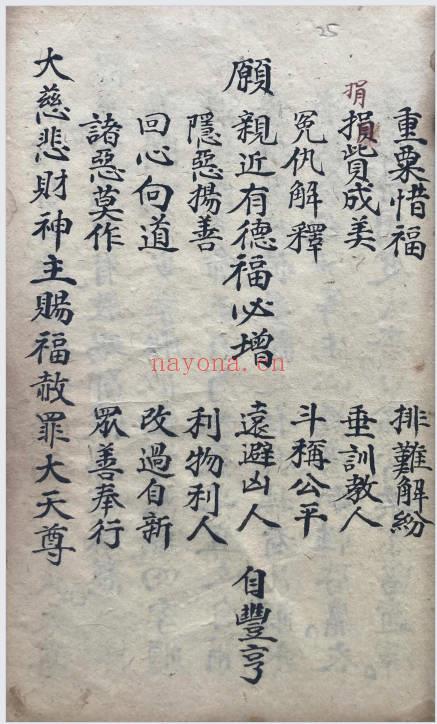 25
重粟惜福　排難解紛
捐
損貲成美　垂訓教人
冤仇解釋　斗稱公平
願親近有德福必增　遠避凶人　自豐亨
隱惡揚善　利物利人
回心向道　改過自新
諸惡莫作　眾善奉行
大慈悲財神主賜福赦罪大天尊
nayona.cn